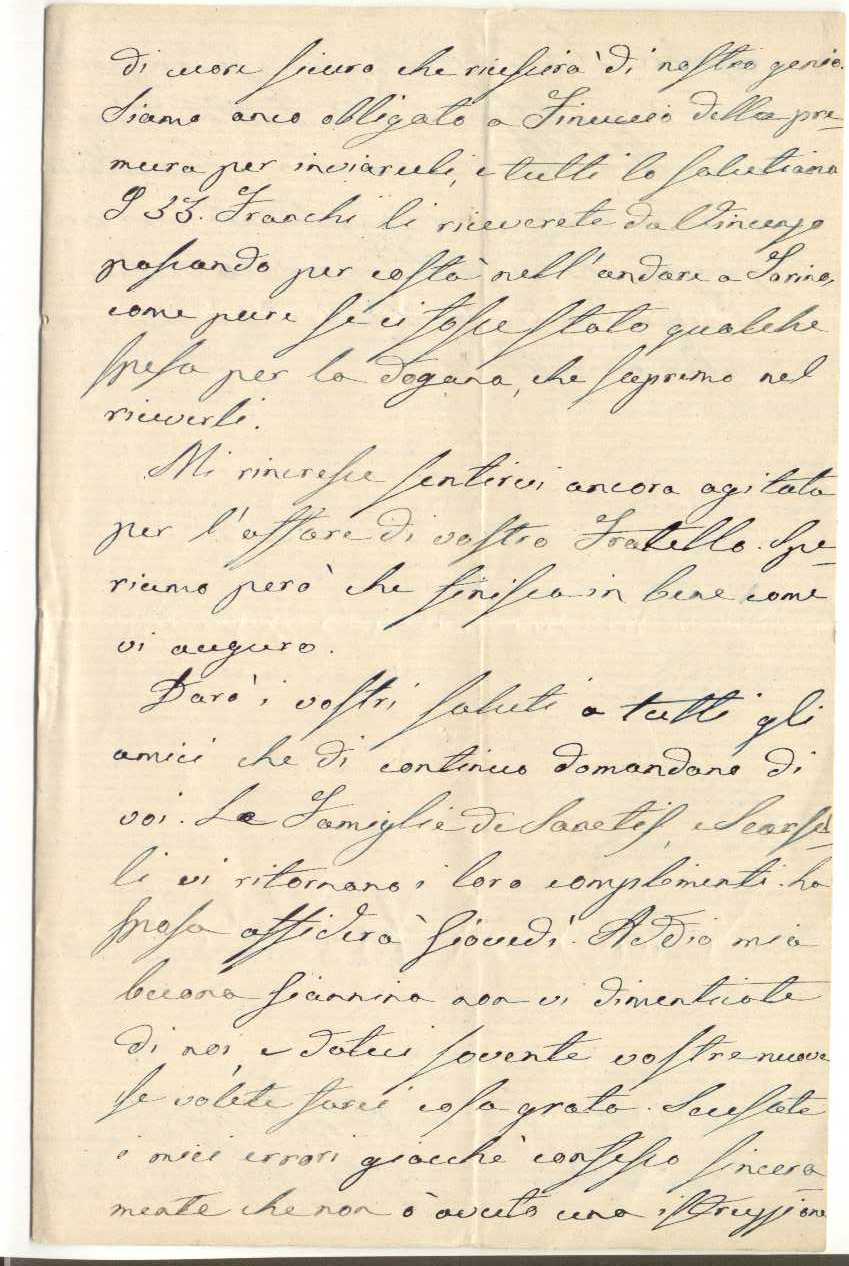 di cuore sicuro che riescirà di nostro genio.
Siamo anco obligato a Finuccio della pre-
mura per inviarceli, e tutti lo salutiamo
I 33. Franchi li riceverete da Vincenzo
passando per costà nell'andare a Torino,
come pure se ci fosse stato qualche
spesa per la dogana, che sapremo nel
riceverli.
Mi rincresce sentirvi ancora agitata
per l'affare di vostro Fratello. Spe-
riamo però che finisca in bene come
vi auguro.
Darò i vostri saluti a tutti gli
amici che di continuo domandano di
voi. Le Famiglie de Sanctis, e Scarsel-
li vi ritornano i loro complimenti. La
sposa Giovedì. Addio mia
buona Giannina non vi dimenticate
di noi, e dateci sovente vostre nuove
se volete farci cosa grata. Scusate
i miei errori giacchè confesso sincera
mente che non ò avuto una istruzzione